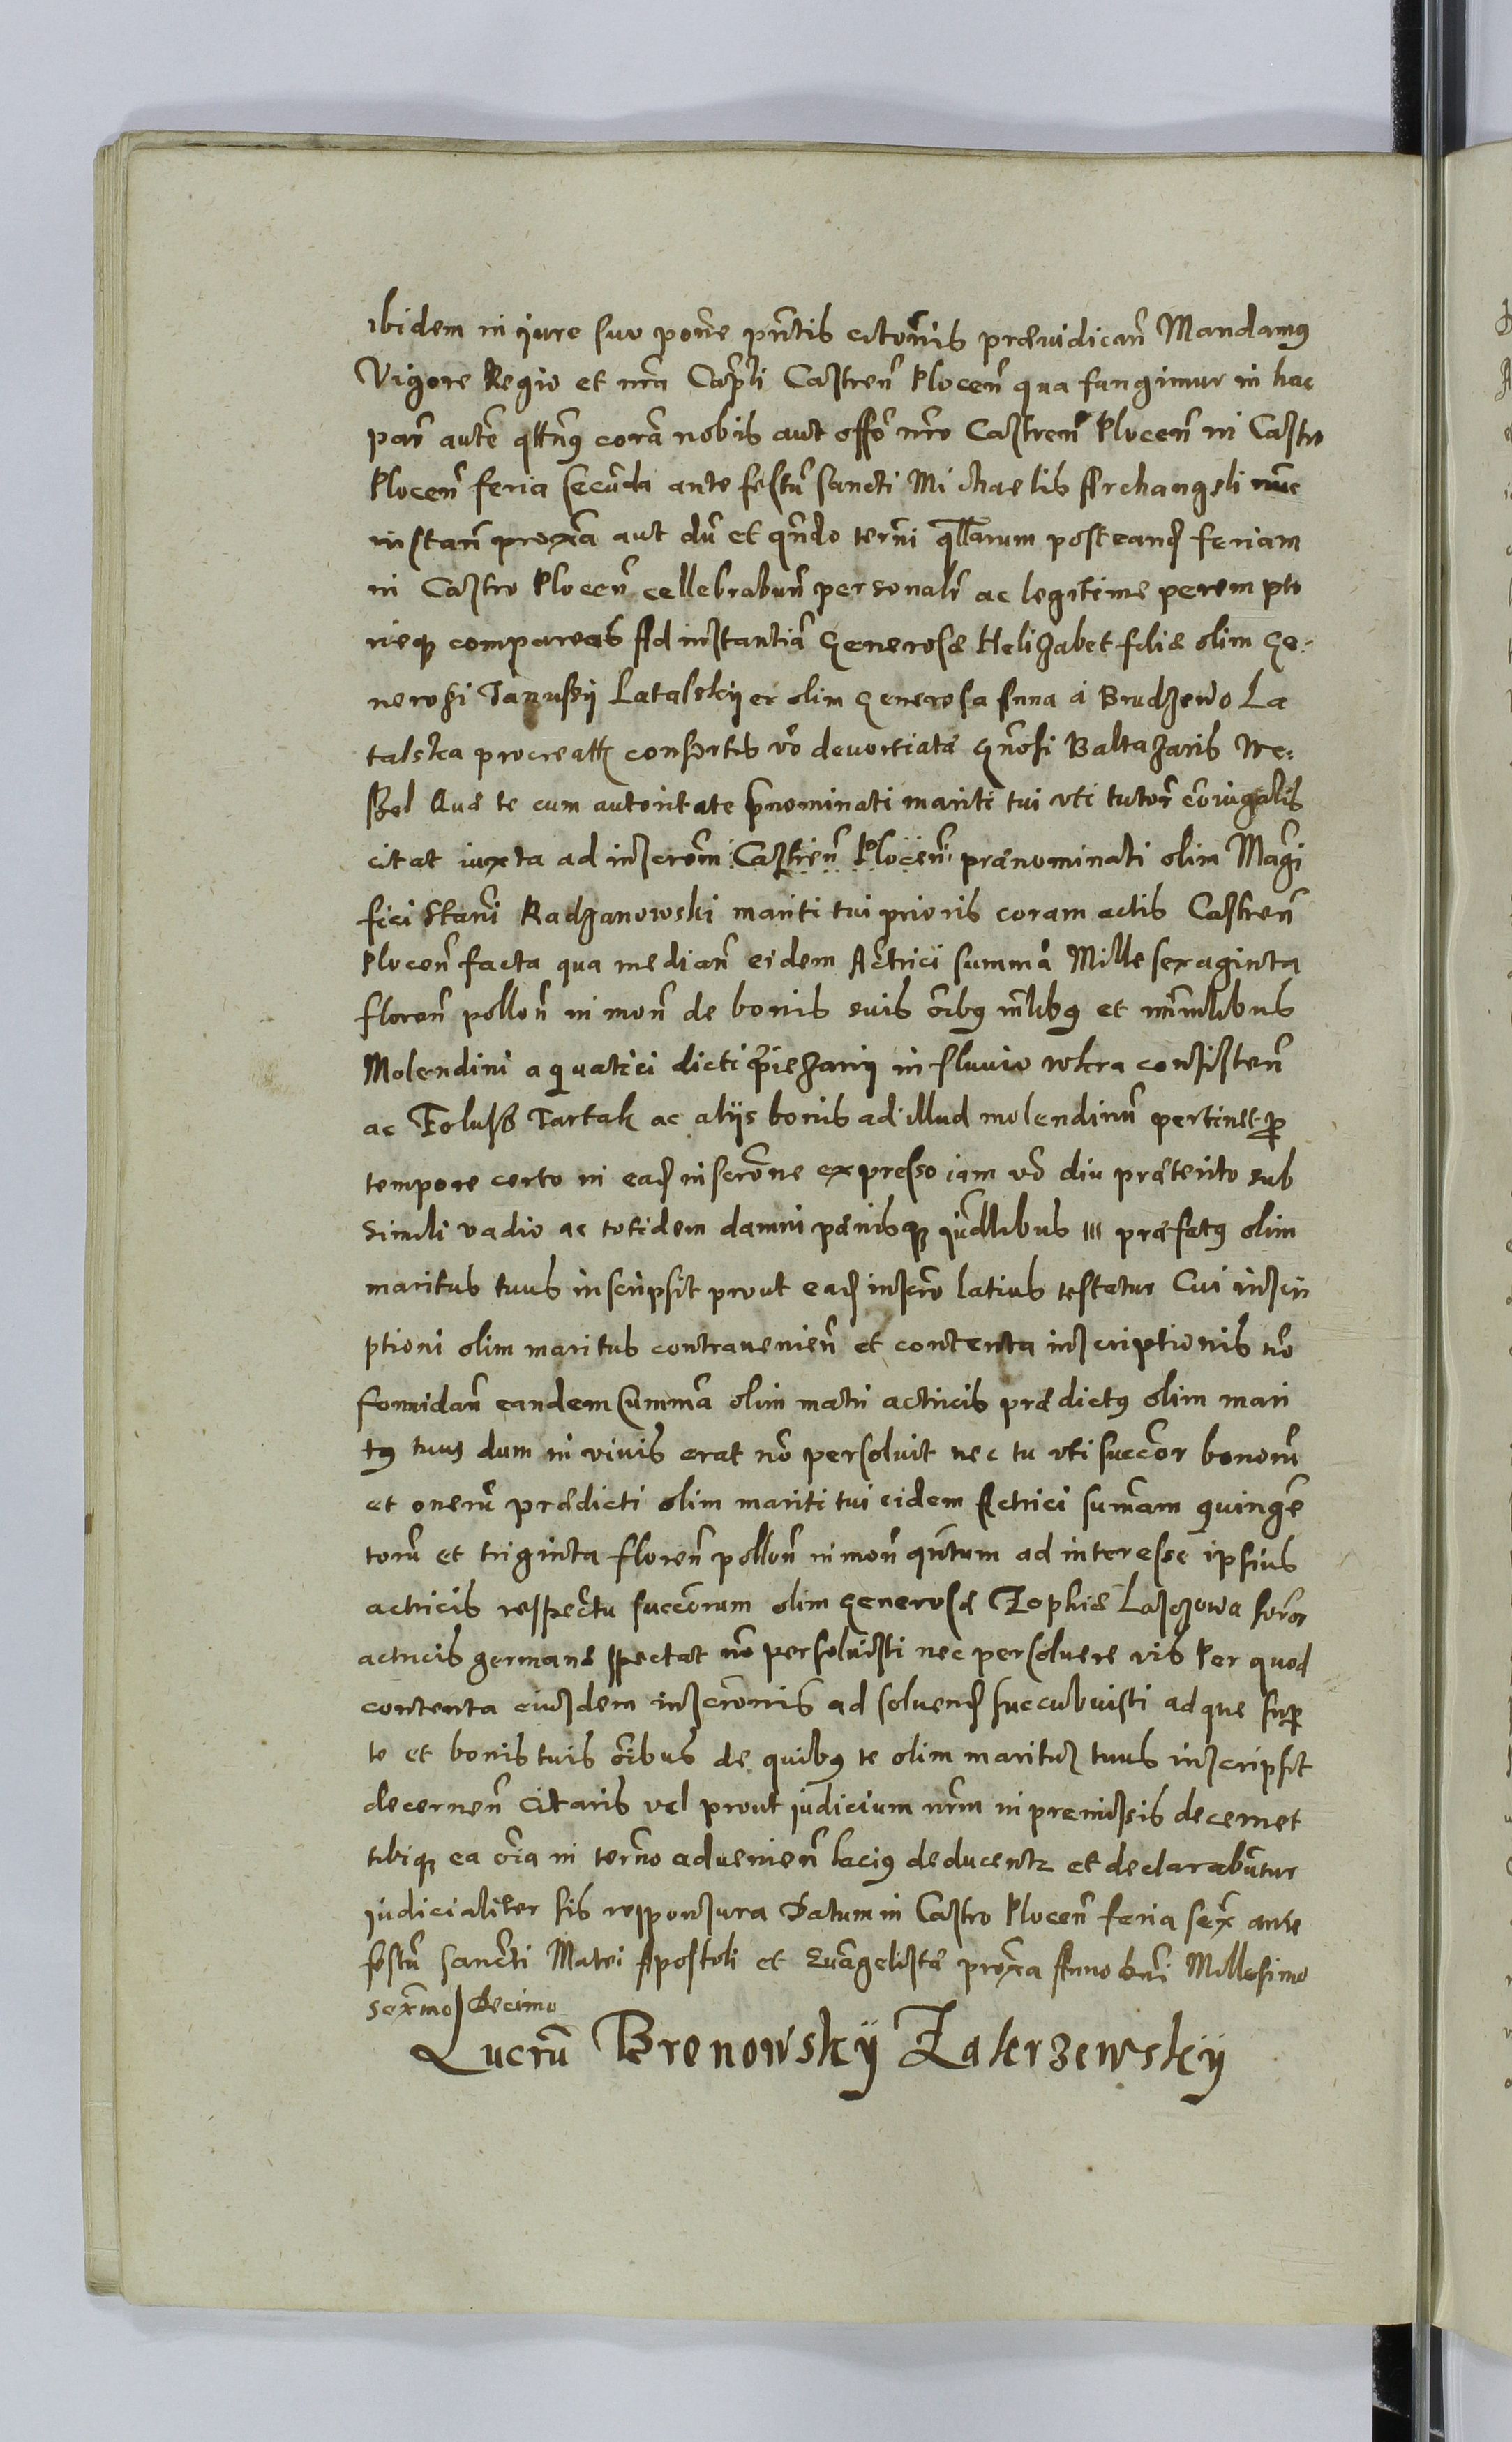 ibidem in iure suo pone pñtis citonis præiudicañ Mandamꝰ
Vigore Regio et nrã Capli Castreñ Ploceñ qua fungimur in hac
par autẽ qttnꝰ corã nobis aut offo nro Castreñ Ploceñ in Castro
Ploceñ feria secũda ante festũ Sancti Michaelis Archangeli nũc
instañ proxã aut dũ et qñdo termi qllarum post eand feriam
in Castro Ploceñ cellebrabuñ personalr ac legitime perempto
rieqz compareas Ad instantiã Generosæ Helizabet filiæ olim Ge=
nerosi Janussij Latalskij ex olim Generosa Anna a Brudzewo La
talska procreatt consortis vo deuortiatæ Gnosi Baltazaris We=
ssel Quæ te cum autoritate prnominati mariti tui vti tutor coniugalis
citat iuxta ad inscrom Castreñ Ploceñ prænominati olim Magni
fici Stani Radzanowski mariti tui prioris coram actis Castreñ
Ploceñ facta qua mediañ eidem Actrici summã Mille sexaginta
floreñ polloñ in moñ de bonis suis oibꝰ mlibꝰ et immlibus
Molendini aquatici dicti Piezanij in fluuio wkra consisteñ
ac Folusz Tartak ac alijs bonis ad illud molendinũ pertineñ pr
tempore certo in ead inscrone expresso iam vo diu præterito sub
simili vadio ac totidem damni pænisqz iudlibus III præfatꝰ olim
maritus tuus inscripsit prout ead inscro latius testatur Cui inscri
ptioni olim maritus contraueniẽ et contenta inscriptionis no
formidañ eandem summã olim matri actricis prædictꝰ olim mari
tꝰ tuus dum in viuis erat no persoluit nec tu vti succor bonorũ
et onerũ prædicti olim mariti tui eidem Actrici sumam quingẽ
torũ et triginta floreñ polloñ in moñ qntum ad interesse ipsius
actricis respectu succorum olim Generosæ Zophiæ Laszowa soror
actricis germanæ spectat no persoluisti nec persoluere vis Per quod
contenta eiusdem inscronis ad soluend succubuisti adque super
te et bonis tuis oibus de quibꝰ te olim maritus tuus inscripsit
decerneñ Citaris vel prout iudicium nrm in premissis decernet
tibiqz ea oia in termo adueniẽ lacius deducentr et declarabũtur
judicialiter sis responsura Datum in Castro Ploceñ feria sex ante
festũ Sancti Matei Apostoli et Euãgelistæ proxa Anno dni Millesimo
sexmo Decimo
Lucrũ Brenowskÿ Zakrzewskÿ